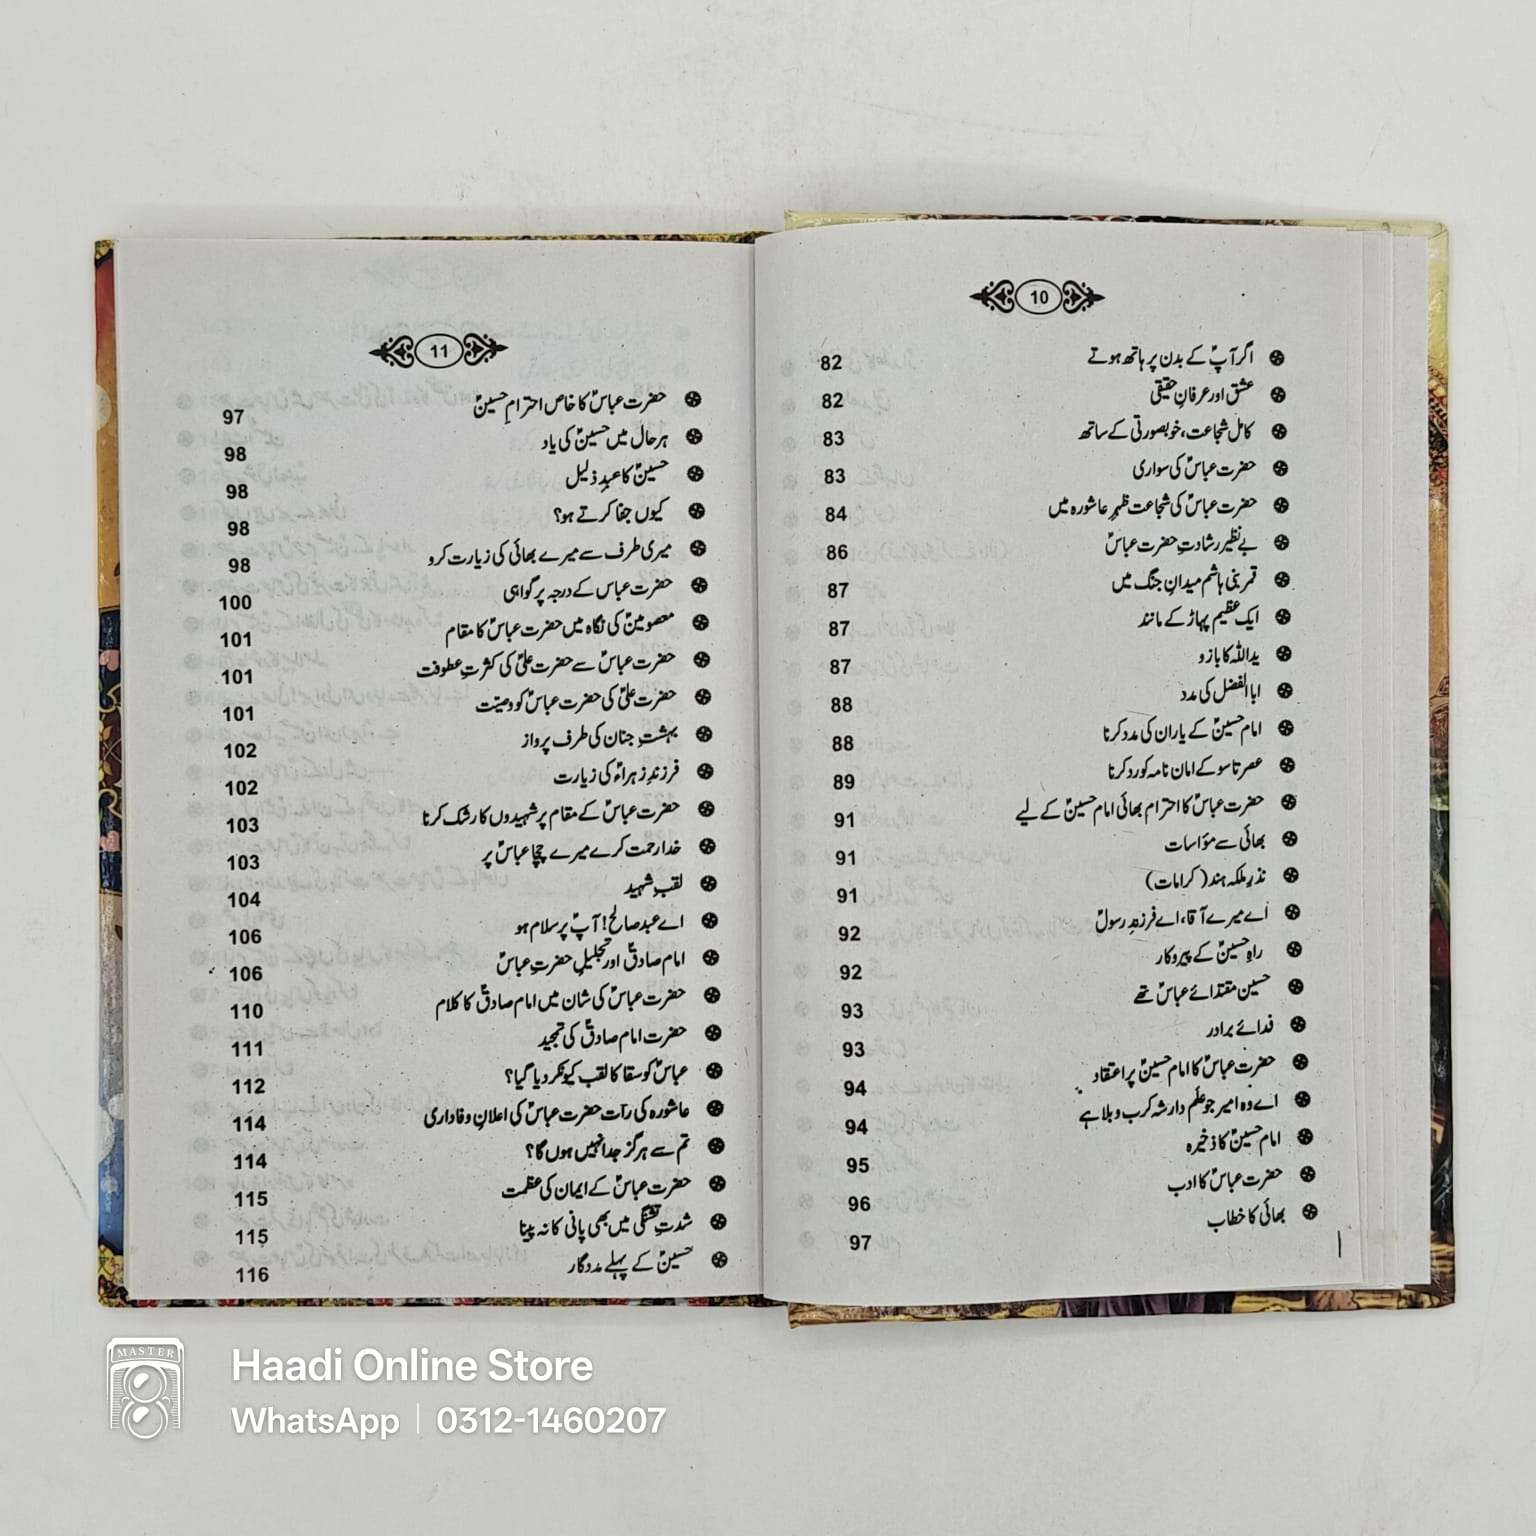 10
اگر آپؑ کے بدن پر ہاتھ ہوتے 82
عشق اور عرفانِ حقیقی 82
کامل شجاعت، خوبصورتی کے ساتھ 83
حضرت عباسؑ کی سواری 83
حضرت عباسؑ کی شجاعت ظہرِ عاشورہ میں 84
بے نظیر رشادتِ حضرت عباسؑ 86
قمر بنی ہاشم میدانِ جنگ میں 87
ایک عظیم پہاڑ کے مانند 87
ید اللہ کا بازو 87
ابا الفضل کی مدد 88
امام حسینؑ کے یاران کی مدد کرنا 88
عصر تاسوکے امان نامہ کو رد کرنا 89
حضرت عباسؑ کا احترام بھائی امام حسینؑ کے لیے 91
بھائی سے مؤاسات 91
نذرِ ملکہ ہند (کرامات) 91
اے میرے آقا، اے فرزندِ رسولؐ 92
راہِ حسینؑ کے پیروکار 92
حسین مقتدائے عباسؑ تھے 93
فدائے برادر 93
حضرت عباسؑ کا امام حسینؑ پر اعتقاد 94
اے وہ امیر جو علَم دار شہ کرب و بلا ہے 94
امام حسینؑ کا ذخیرہ 95
حضرت عباسؑ کا ادب 96
بھائی کا خطاب 97
11
حضرت عباسؑ کا خاص احترامِ حسینؑ 97
ہر حال میں حسینؑ کی یاد 98
حسینؑ کا عبدِ ذلیل 98
کیوں جفا کرتے ہو؟ 98
میری طرف سے میرے بھائی کی زیارت کرو 98
حضرت عباس کے درجہ پر گواہی 100
معصومینؑ کی نگاہ میں حضرت عباسؑ کا مقام 101
حضرت عباسؑ سے حضرت علیؑ کی کثرتِ عطوفت 101
حضرت علیؑ کی حضرت عباسؑ کو وصیّت 101
بہشتِ جنان کی طرف پرواز 102
فرزندِ زہراءؑ کی زیارت 102
حضرت عباسؑ کے مقام پر شہیدوں کا رشک کرنا 103
خدا رحمت کرے میرے چچا عباسؑ پر 103
لقبِ شہید 104
اے عبد صالح! آپؑ پر سلام ہو 106
امام صادقؑ اور تجلیلِ حضرتِ عباسؑ 106
حضرت عباسؑ کی شان میں امام صادقؑ کا کلام 110
حضرت امام صادقؑ کی تمجید 111
عباسؑ کو سقا کا لقب کیونکر دیا گیا؟ 112
عاشورہ کی رات حضرت عباسؑ کی اعلانِ وفاداری 114
تم سے ہرگز جدا نہیں ہوں گا؟ 114
حضرت عباسؑ کے ایمان کی عظمت 115
شدتِ تشنگی میں بھی پانی کا نہ پینا 115
حسینؑ کے پہلے مددگار 116
MASTER
Haadi Online Store
WhatsApp | 0312-1460207